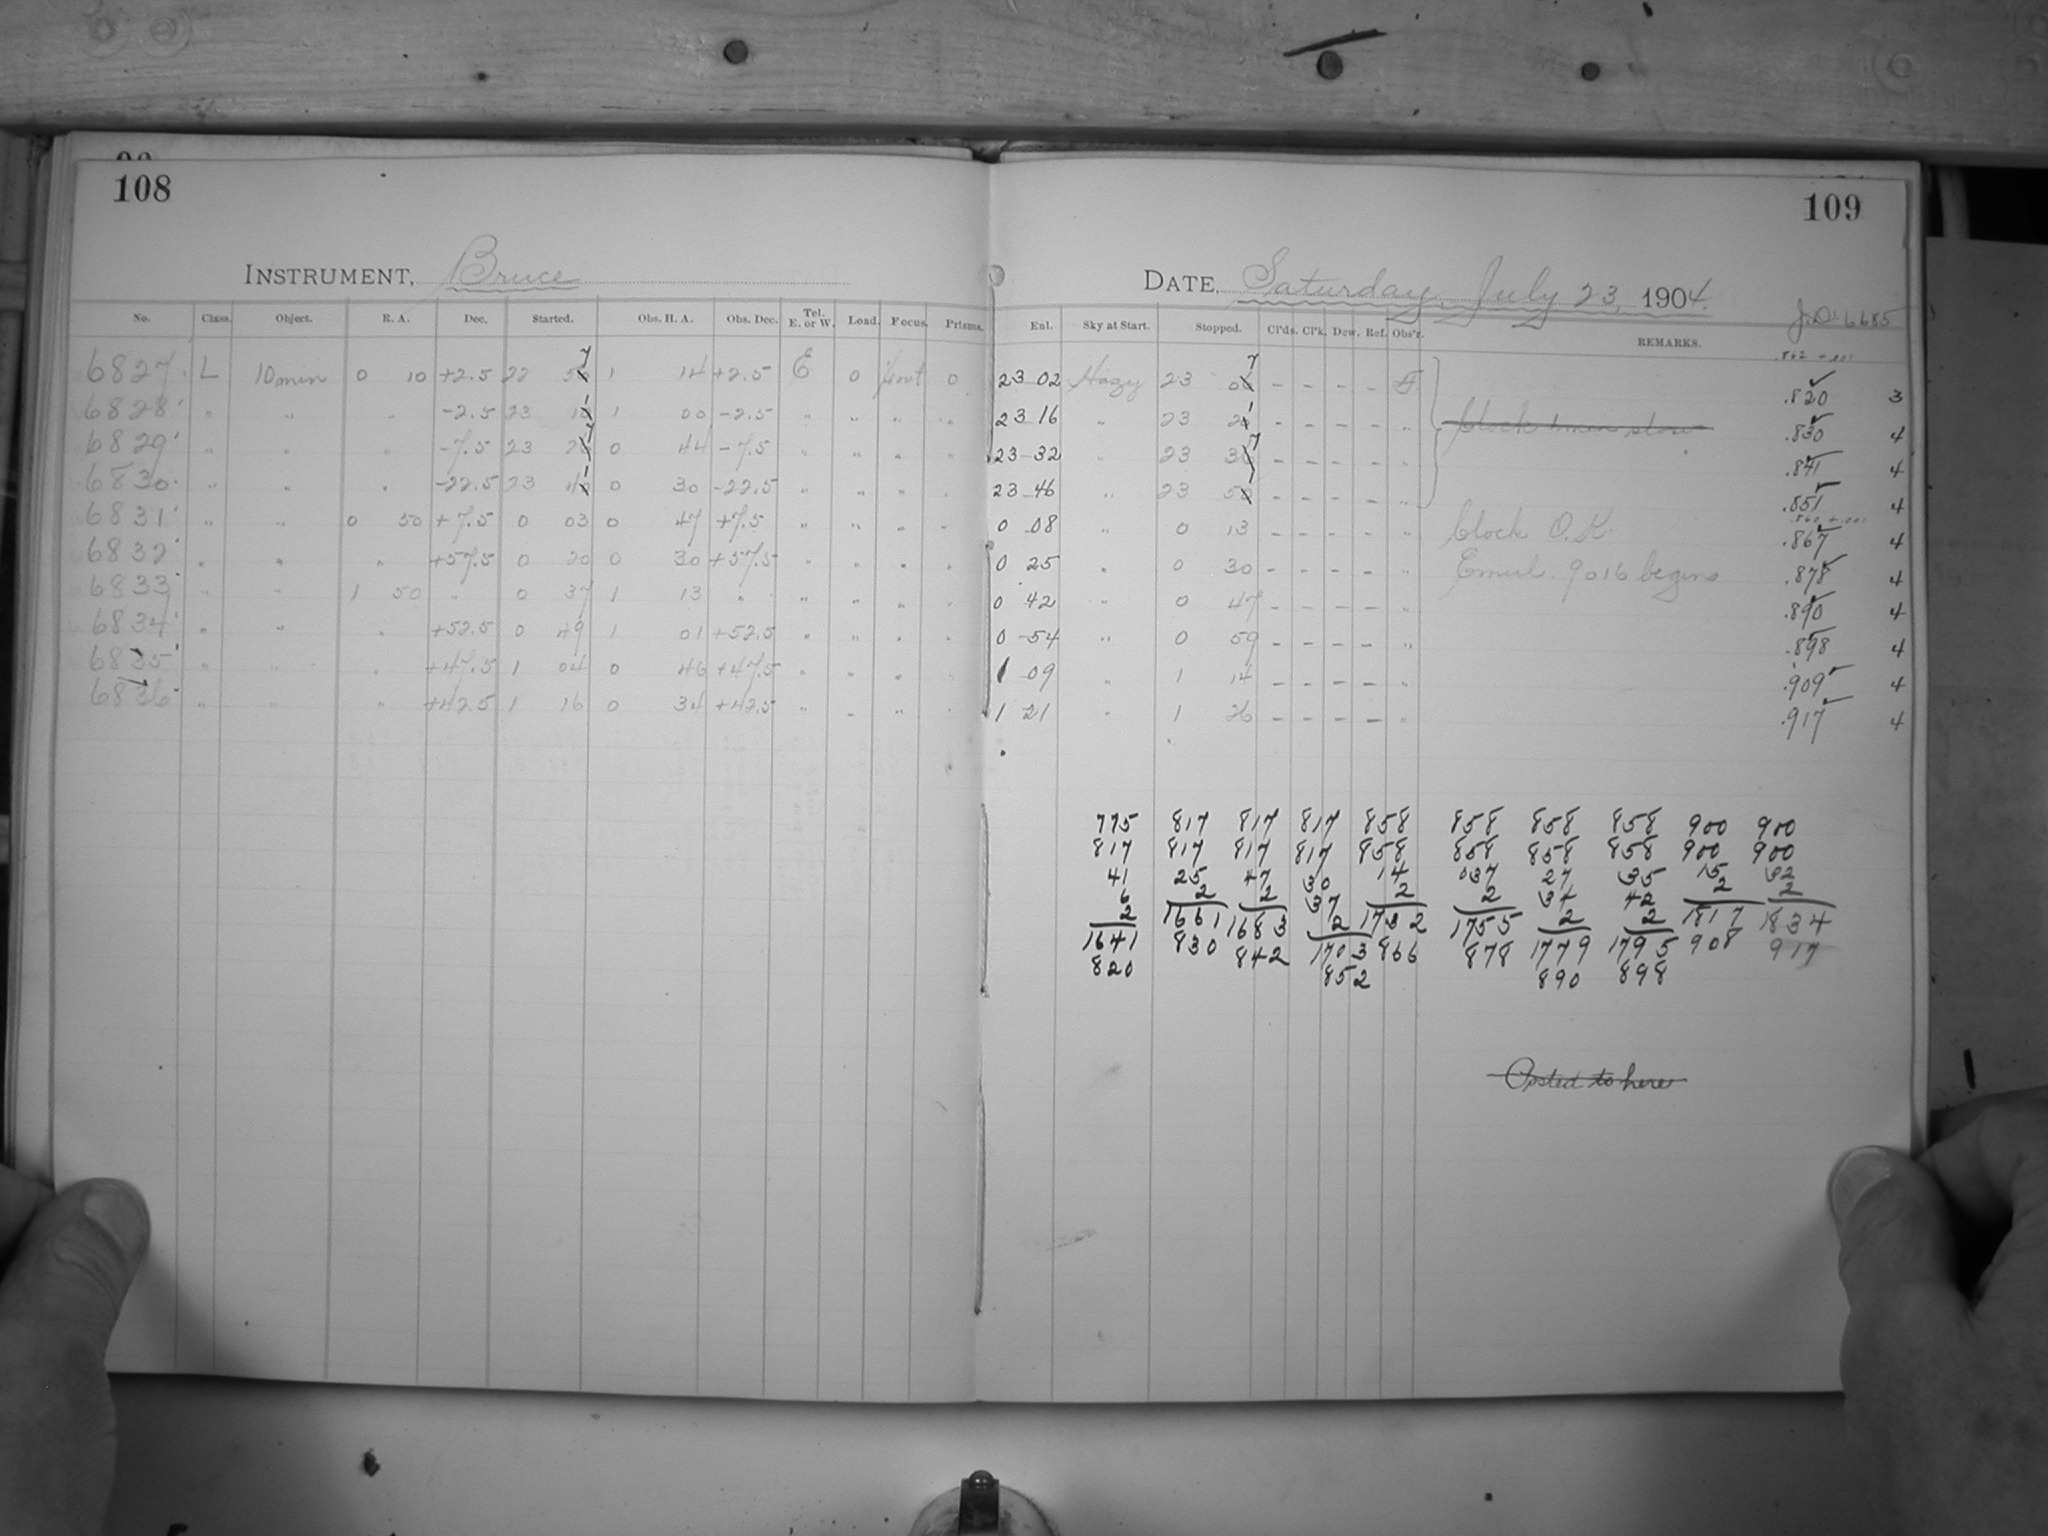 108
109
INSTRUMENT, Bruce
DATE, Saturday, July 23, 1904
J.D. 6685
No. Class. Object. R. A. Dec. Started. Obs. H. A. Obs. Dec. Tel. E. or W. Load. Focus. Prisms. Enl. Sky at Start. Stopped. Cl'ds. Cl'k. Dew. Ref. Obs'r. REMARKS.
6827 L 10 min 0 10 +2.5 22 57 1 14 +2.5 E 0 0 23 02 Hazy 23 07 - - - - .820 3
6828 " " " -2.5 23 1 00 -2.5 " " " " 23 16 " 23 21 - - - - " Clock 1 min slow .830 4
6829 " " " -7.5 23 27 0 44 -7.5 " " " " 23-32 " 23 37 - - - - " .841 4
6830 " " " -22.5 23 41 0 30 -22.5 " " " " 23-46 " 23 51 - - - - " .851 4
6831 " " 0 50 +7.5 0 03 0 47 +7.5 " " " " 0 08 " 0 13 - - - - " Clock O.K. .867 4
6832 " " " +57.5 0 20 0 30 +57.5 " " " " 0 25 " 0 30 - - - - " Emul. 9016 begins .878 4
6833 " " 1 50 " 0 37 1 13 " " " " " 0 42 " 0 47 - - - - " .890 4
6834 " " " +52.5 0 49 1 01 +52.5 " " " " 0-54 " 0 59 - - - - " .898 4
6835 " " " +47.5 1 04 0 46 +47.5 " " " " 1 09 " 1 14 - - - - " .909 4
6836 " " " +42.5 1 16 0 34 +42.5 " " " " 1 21 " 1 26 - - - - " .917 4
775 817 817 817 858 858 858 858 900 900
817 817 817 817 858 858 858 858 900 900
41 25 47 30 14 037 27 35 15 32
6 2 2 37 2 2 34 42 2 2
2 1661 1683 2 1732 1755 2 2 1817 1834
1641 830 842 1703 866 878 1779 1795 908 917
820 852 890 898
Posted to here